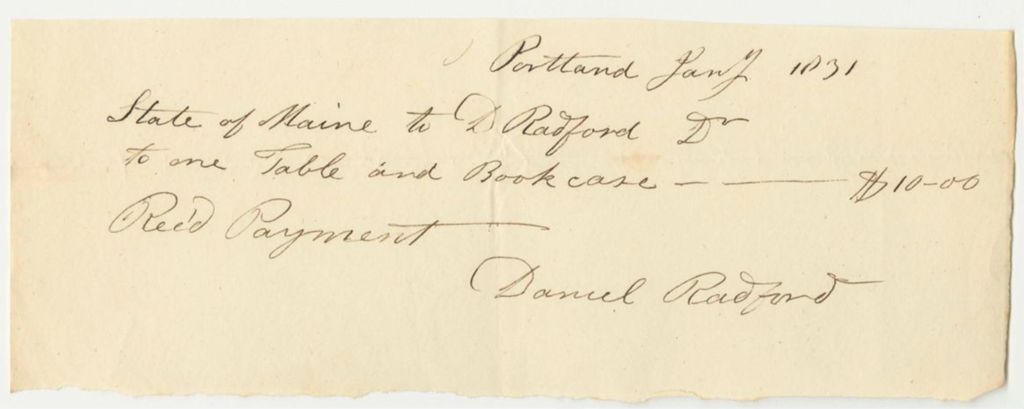 Portland Jany 1831
State of Maine to D Radford Dr
to one Table and Bookcase — — $10-00
Rec'd Payment
Daniel Radford